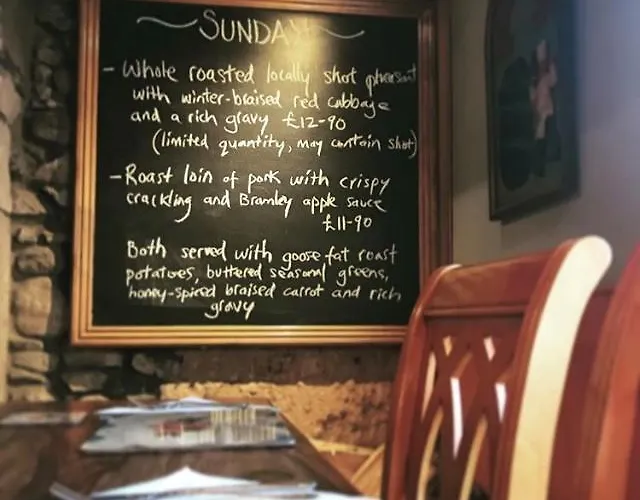 SUNDAY
- Whole roasted locally shot pheasant
with winter-braised red cabbage
and a rich gravy £12-90
(limited quantity, may contain shot)
- Roast loin of pork with crispy
crackling and Bramley apple sauce
£11-90
Both served with goose fat roast
potatoes, buttered seasonal greens,
honey-spiced braised carrot and rich
gravy